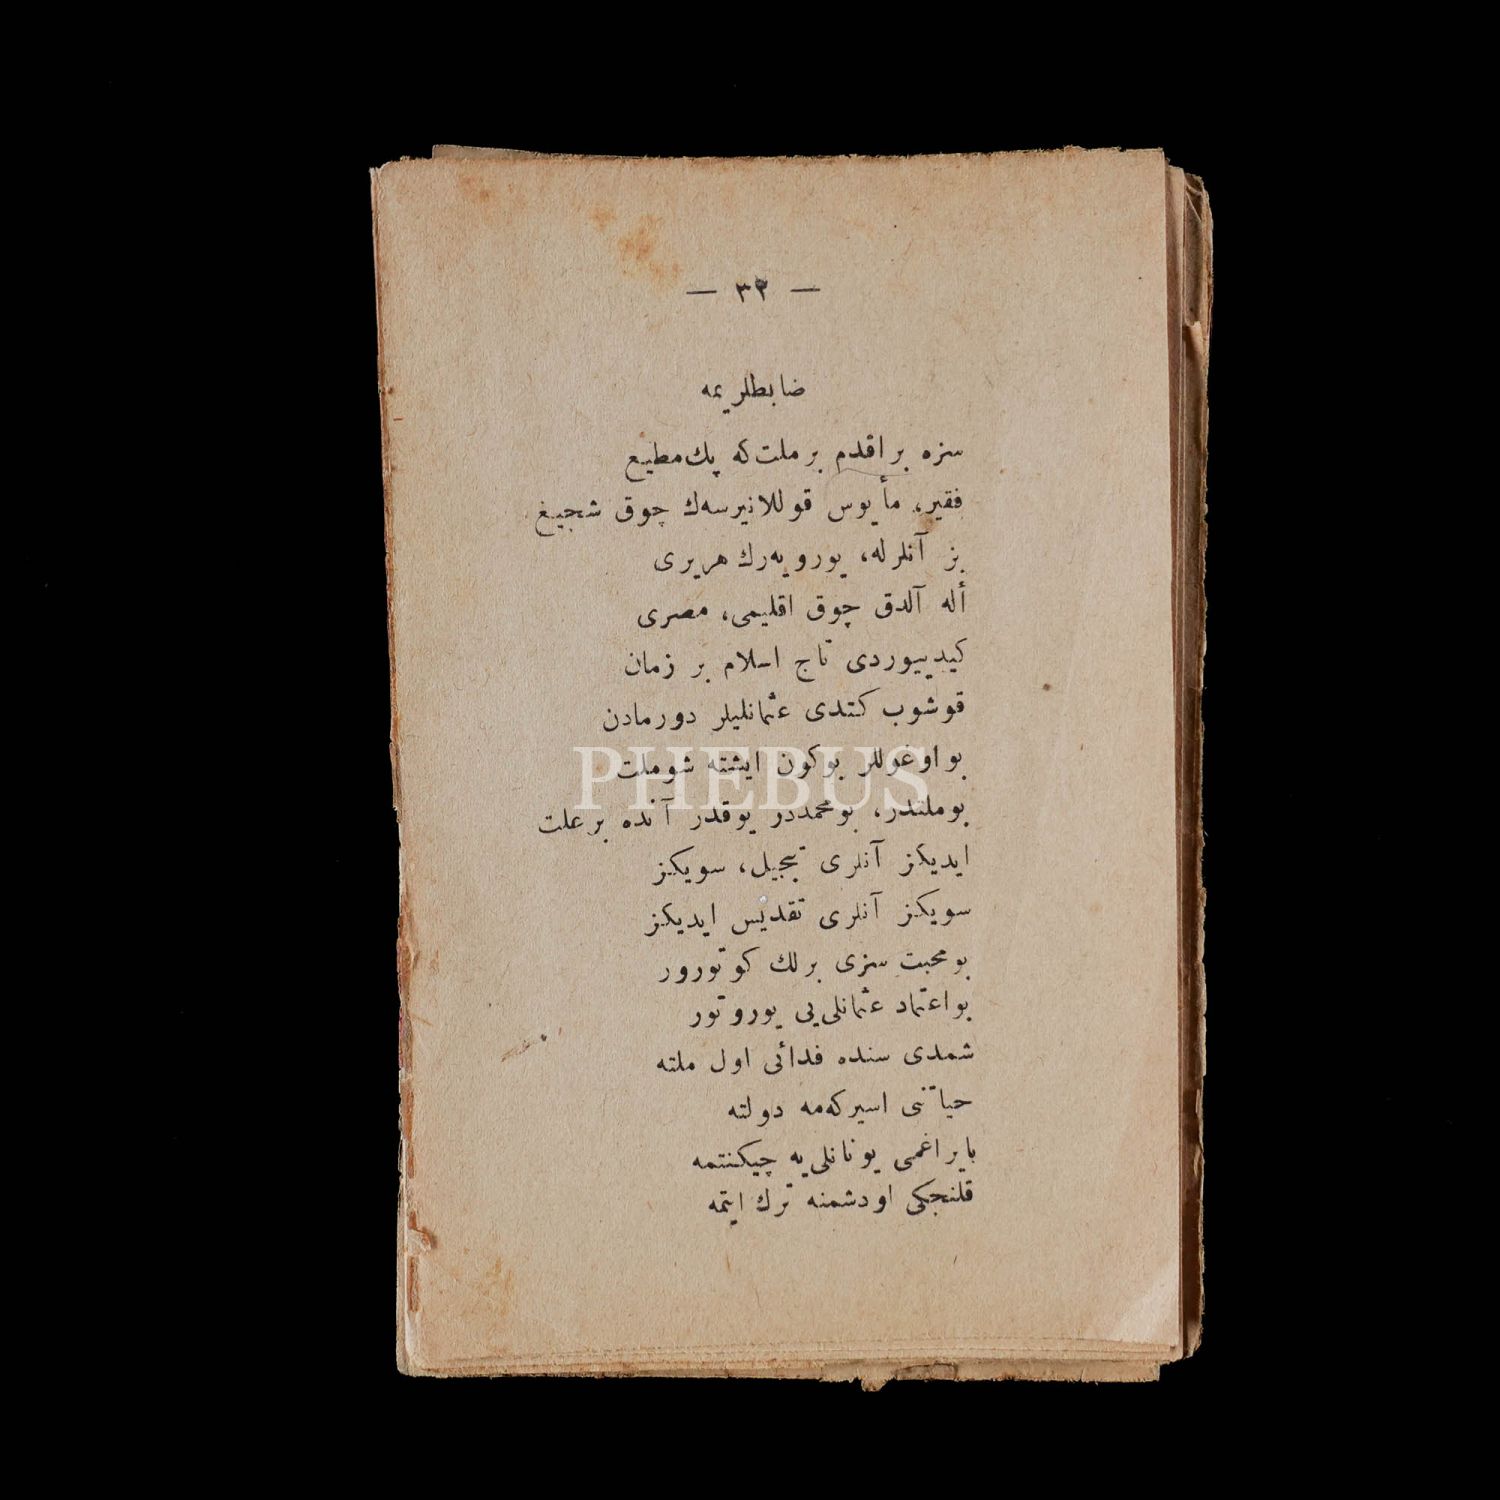 — ٣٣ —
ضابطلریمه
سزه براقدم بر ملت که پك مطیع
فقیر، مأیوس قوللانیرسەك چوق شجیع
بز آنلرله، یورویەرك هر یری
أله آلدق چوق اقلیمی، مصری
کیدییوردی تاج اسلام بر زمان
قوشوب کتدی عثمانلیلر دورمادن
بو اوغوللر بوکون ایشته شو ملت
بو ملتدر، بو محمددر یوقدر آنده بر علت
ایدیکز آنلری تبجیل، سویکز
سویکز آنلری تقدیس ایدیکز
بو محبت سزی برلك کوتورور
بو اعتماد عثمانلی‌یی یوروتور
شمدی سنده فدائی اول ملته
حیاتنی اسیرکەمه دولته
بایراغمی یونانلی‌یه چیکنتمه
قلنجکی او دشمنه ترك ایتمه
PHEBUS